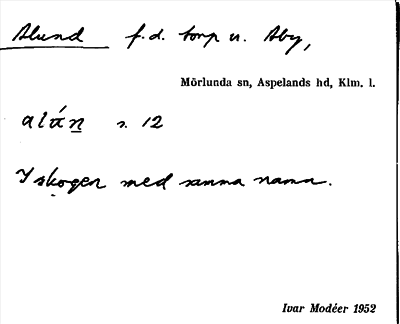 Alund f.d. torp u. Åby,
Mörlunda sn, Aspelands hd, Klm. l.
alú̄n s. 12
I skogen med samma namn.
Ivar Modéer 1952